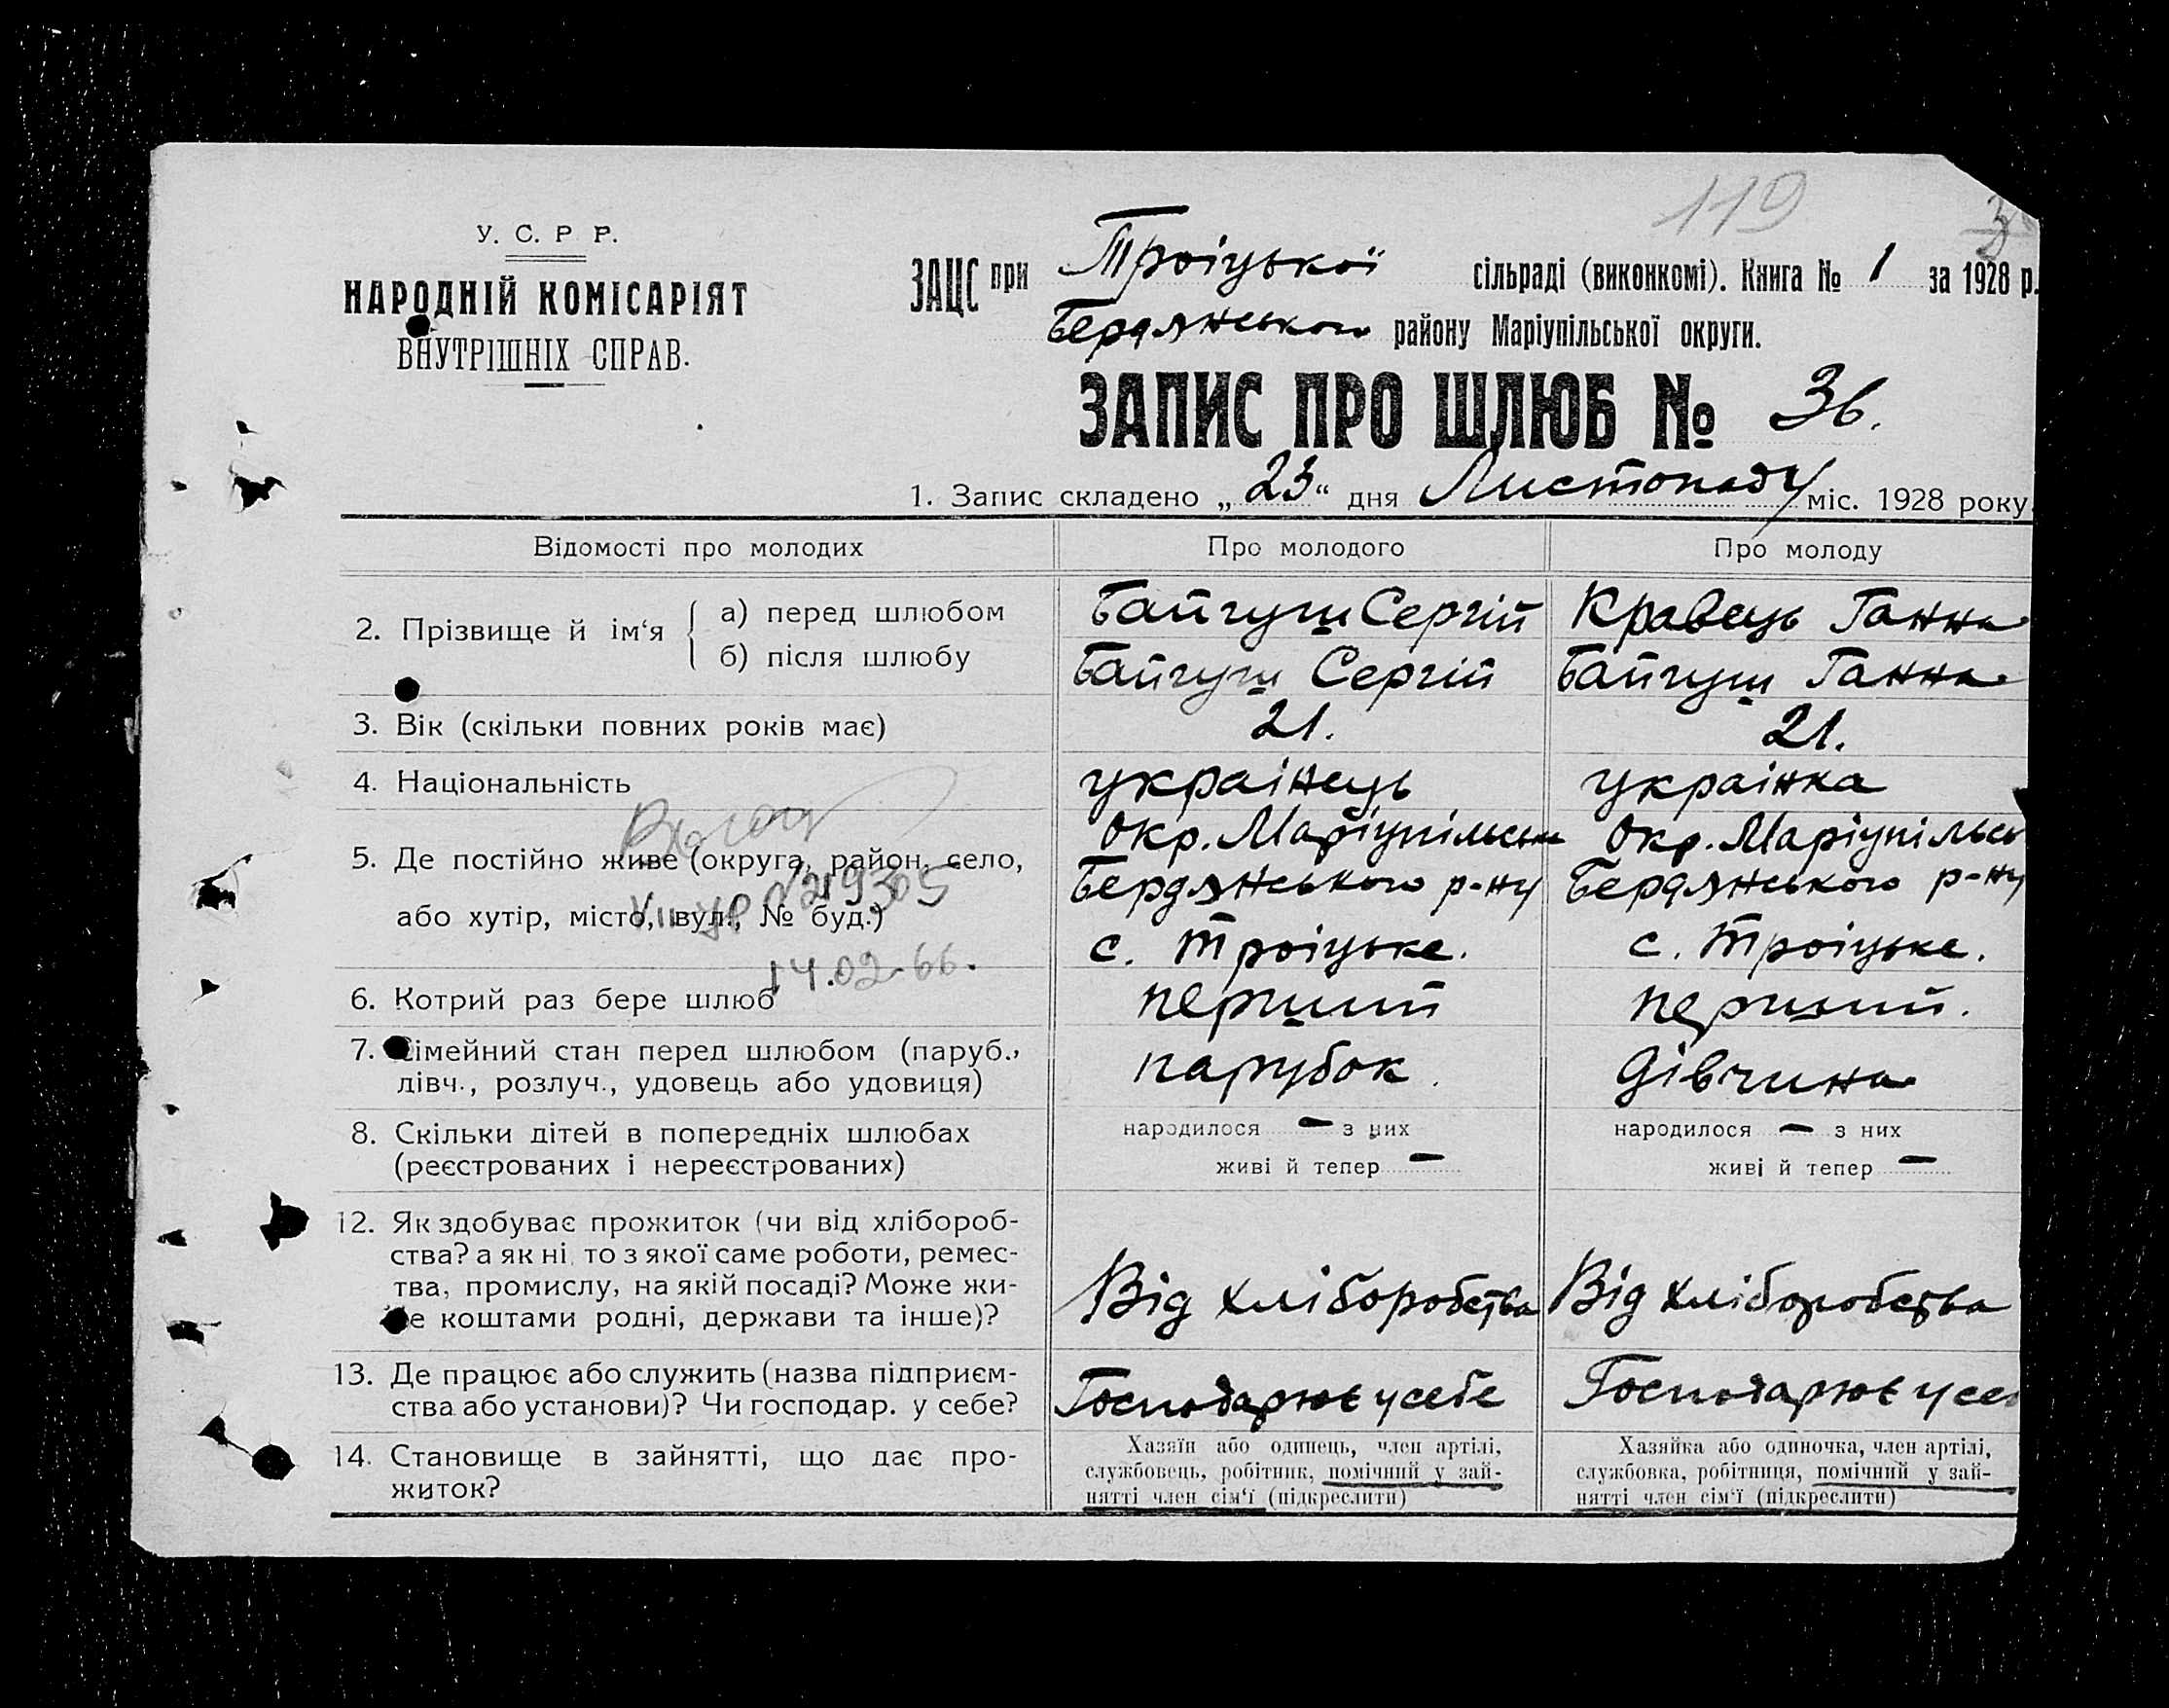 119
У. С. Р Р.
НАРОДНІЙ КОМІСАРІЯТ
ВНУТРІШНІХ СПРАВ.
ЗАЦС при Троіцькоі сільраді (виконкомі). Книга № 1 за 1928 р.
Бердянського району Маріупільської округи.
ЗАПИС ПРО ШЛЮБ № 36.
1. Запис складено „23“ дня Листопаду міс. 1928 року.
Відомості про молодих Про молодого Про молоду
2. Прізвище й ім‘я
а) перед шлюбом Байгуш Сергій Кравець Ганна
б) після шлюбу Байгуш Сергій Байгуш Ганна
3. Вік (скільки повних років має) 21. 21.
4. Національність украінець украінка
5. Де постійно живе (округа, район, село,
або хутір, місто, вул., № буд.)
Окр. Маріупільськ
Бердянського р-ну
с. Троіцьке.
Окр. Маріупільсь
Бердянського р-ну
с. Троіцьке.
14.02-66.
6. Котрий раз бере шлюб перший перший.
7. імейний стан перед шлюбом (паруб.,
дівч., розлуч., удовець або удовиця)
парубок. дівчина
8. Скільки дітей в попередніх шлюбах
(реєстрованих і нереєстрованих)
народилося — з них
живі й тепер —
народилося — з них
живі й тепер —
12. Як здобуває прожиток (чи від хлібороб-
ства? а як ні, то з якої саме роботи, ремес-
тва, промислу, на якій посаді? Може жи-
е коштами родні, держави та інше)?
Від хліборобства Від хліборобства
13. Де працює або служить (назва підприєм-
ства або установи)? Чи господар. у себе?
Господарює у себе Господарює у себ
14. Становище в зайнятті, що дає про-
житок?
Хазяїн або одинець, член артілі,
службовець, робітник, помічний у зай-
нятті член сім‘ї (підкреслити)
Хазяйка або одиночка, член артілі,
службовка, робітниця, помічний у зай-
нятті член сім‘ї (підкреслити)